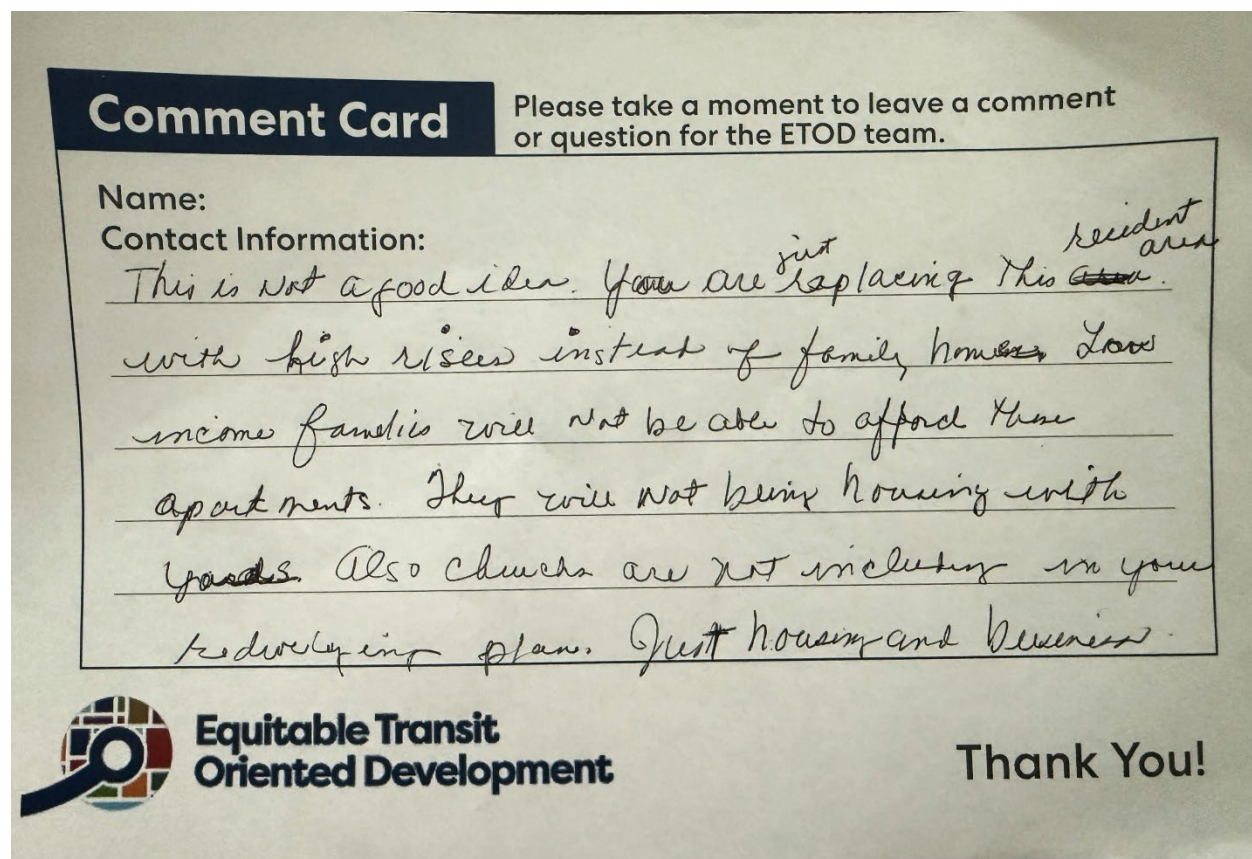 Comment Card
Please take a moment to leave a comment
or question for the ETOD team.
Name:
Contact Information:
resident
just area
This is Not a good idea. You are replacing This area.
with high rises instead of family homes. Low
income families will Not be able to afford these
apartments. They will Not being housing with
yards. Also churchs are not including in your
redeveloping plan. Just housing and business.
Equitable Transit
Oriented Development
Thank You!